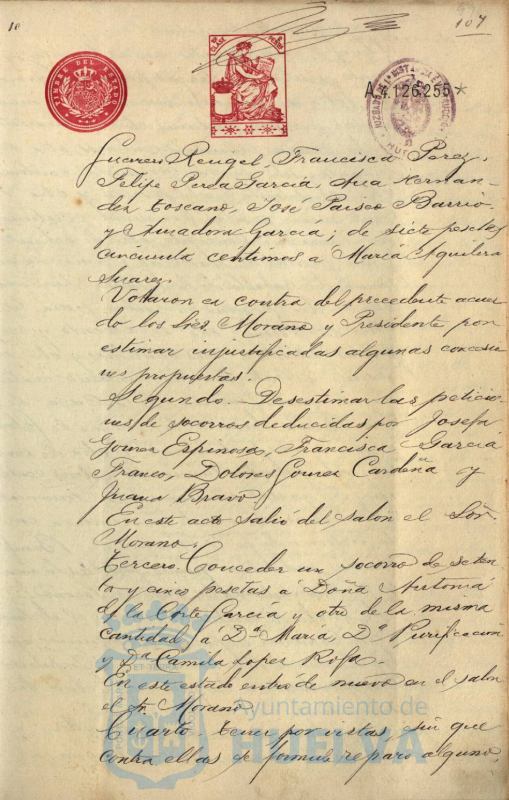 10
107
TIMBRE DEL ESTADO
CLASE
A.4.126.255*
Suarez Rengel, Francisca Perez,
Felipe Perea García, Ana Hernan-
dez Toscano, José Barrio
y Amadora García; de siete pesetas
cincuenta centimos a María Aguilera
Suarez.
Votaron en contra del precedente acuer-
do los Sres. Morano y Presidente por
estimar injustificadas algunas concesio-
nes propuestas.
Segundo. Desestimar las peticio-
nes de socorros deducidas por Josefa
Gomez Espinosa, Francisca García
Franco, Dolores Gomez Cardeña y
Juana Bravo
En este acto salió del salon el Sor.
Morano.
Tercero. Conceder un socorro de seten-
ta y cinco pesetas á Doña Antonia
de la Corte García y otro de la misma
cantidad á Dª María, Dª Purificacion
y Dª Camila Lopez Rofa.
En este estado entró de nuevo en el salon
el Sr. Morano
Cuarto. Tener por vistas, sin que
contra ellas se formule reparo alguno,
Ayuntamiento de
HUELVA